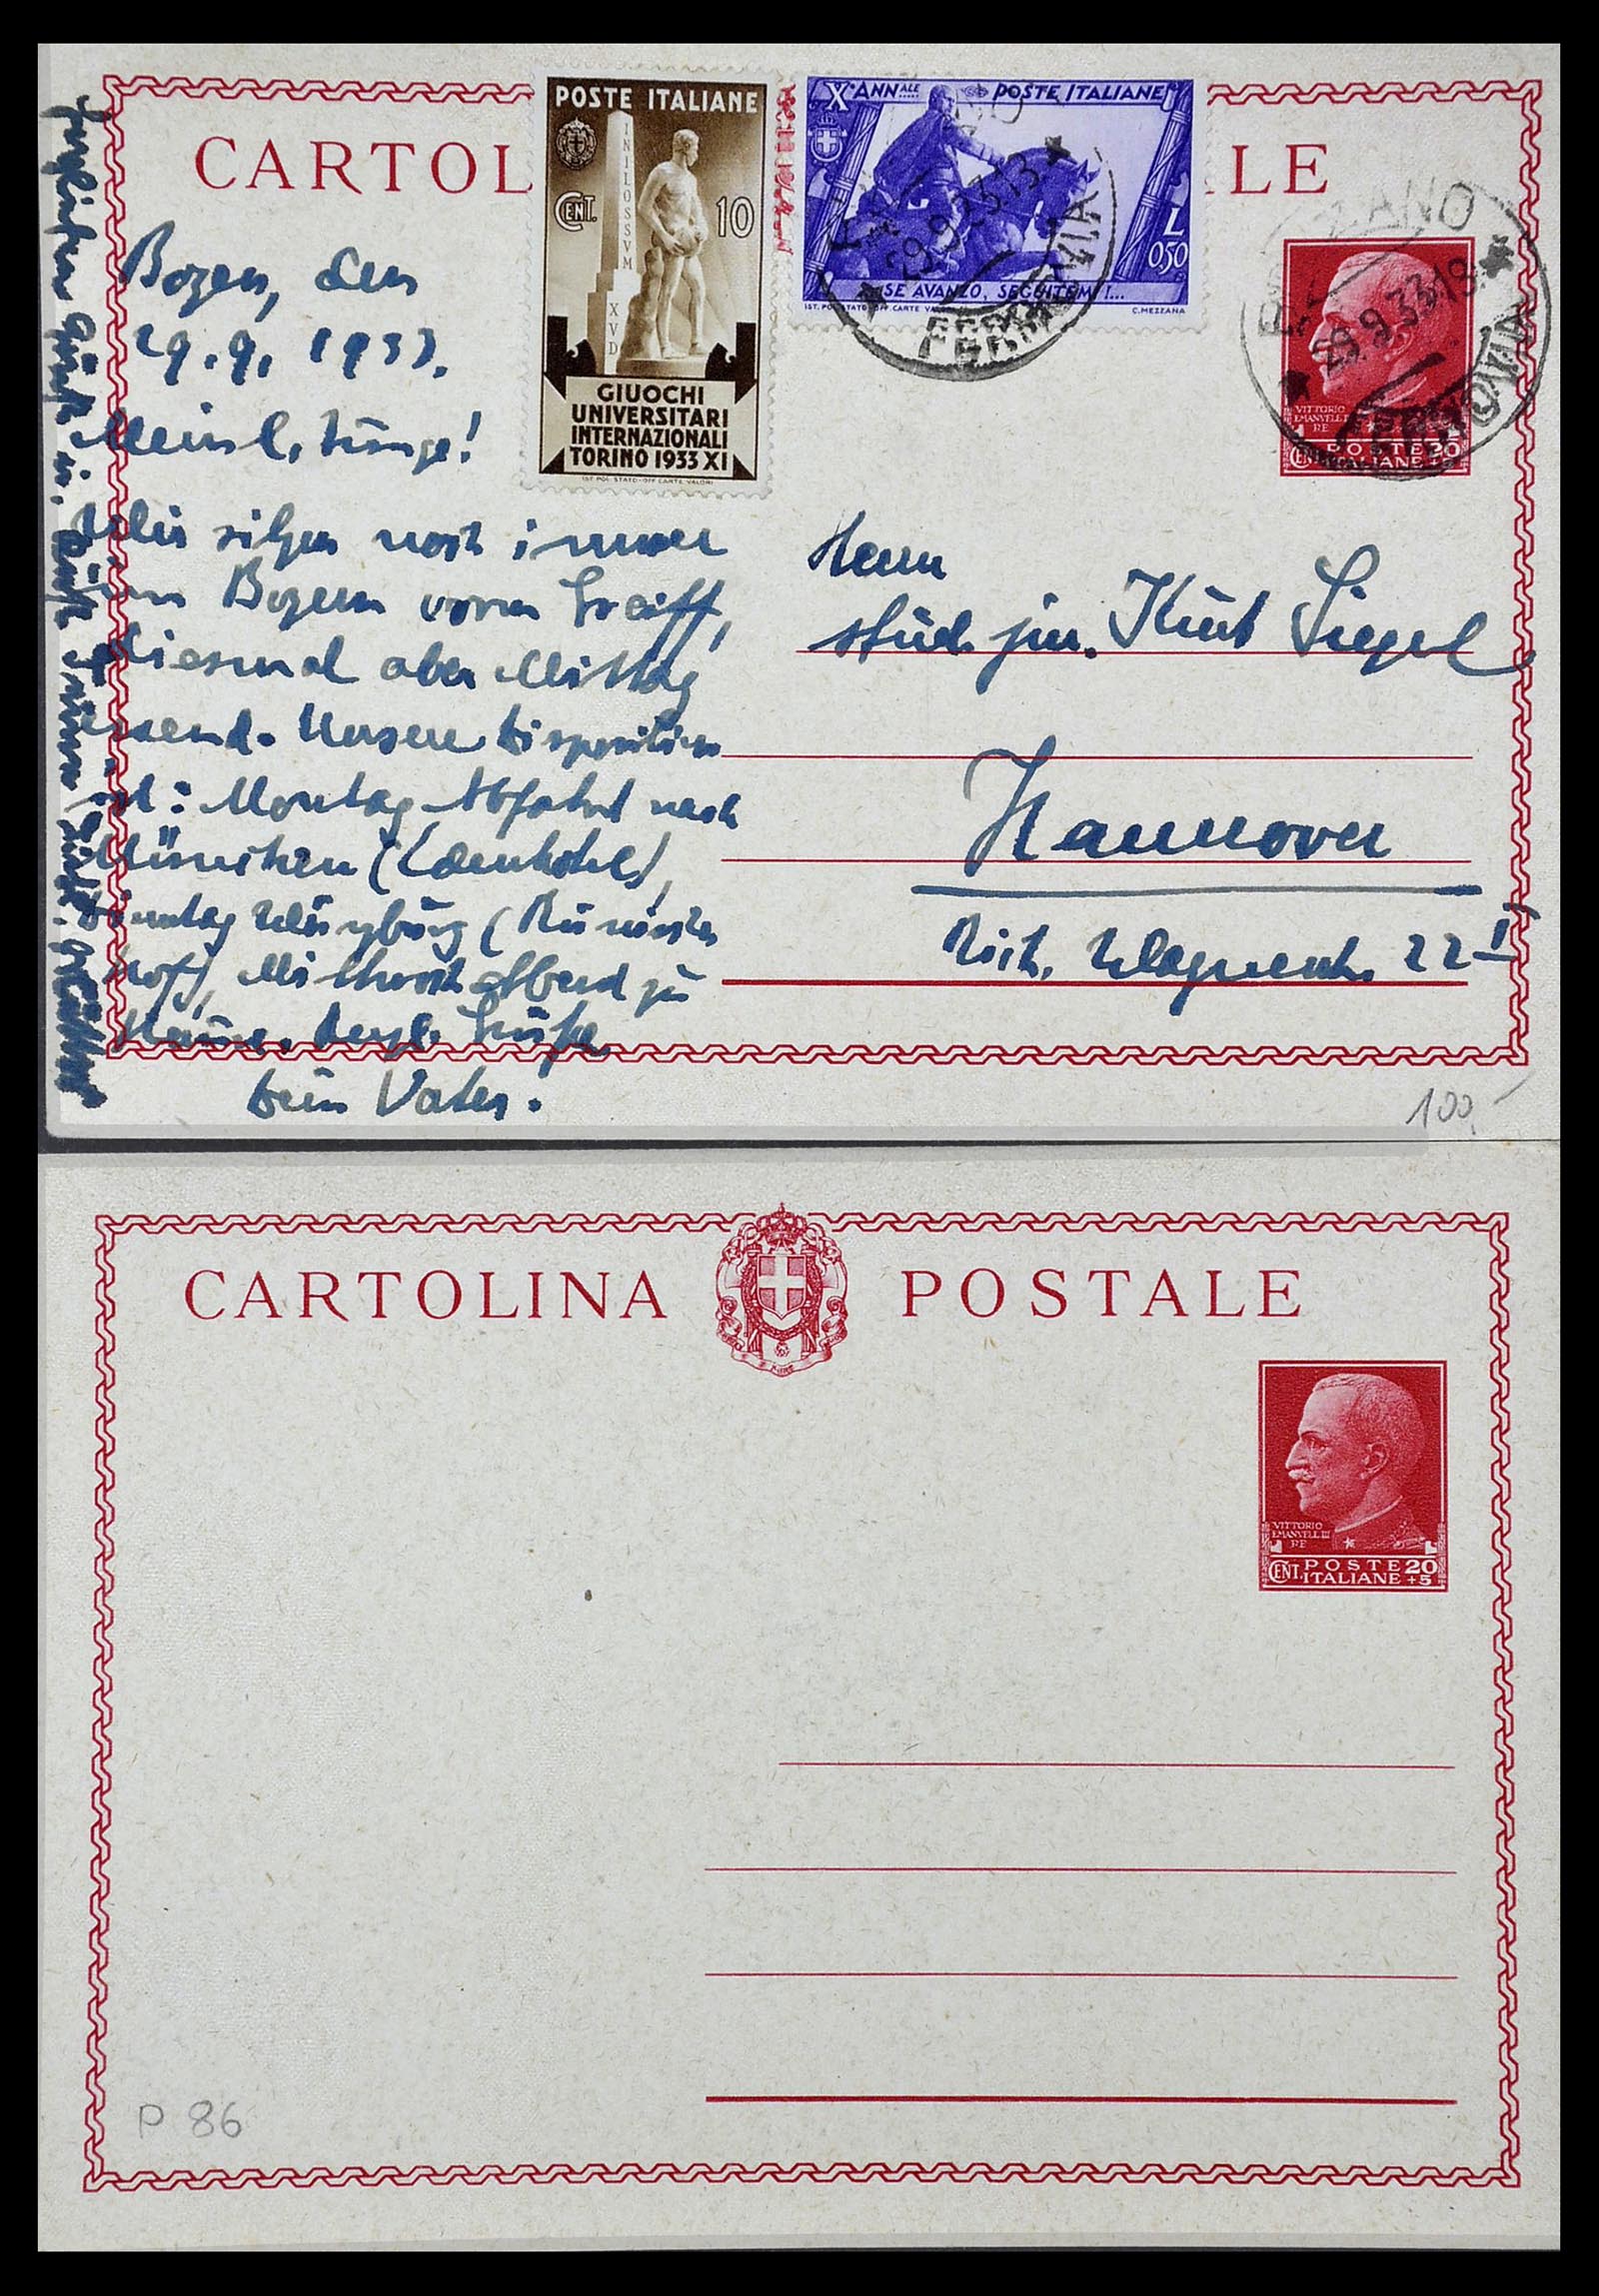 CARTOL
LE
POSTE ITALIANE
IN ILOSSVM
CENT. 10
XVD
GIUOCHI
UNIVERSITARI
INTERNAZIONALI
TORINO 1933 XI
IST. POL. STATO-OFF. CARTE VALORI
X° ANNALE POSTE ITALIANE
L
0,50
SE AVANZO, SEGUITEMI...
IST. POL. STATO OFF. CARTE VALORI C. MEZZANA
29.9.33.13
FERROVIA
BOLZANO
29.9.33.13
FERROVIA
VITTORIO
EMANVELE III
RE
CENT. POSTE 20
ITALIANE +5
Bozen, den
29.9.1933.
Mein l. Junge!
Wir sitzen noch immer
in Bozen vorm Greiff,
diesmal aber Mittag
essend. Unsere Disposition
ist: Montag Abfahrt nach
München
Dienstag Würzburg
hof), Mittwoch Abend zu
Hause. Herzl. Grüße
Dein Vater.
Herrn
stud. jur. Kurt Siegel
Hannover
Rich. Wagnerstr. 22 I
100,-
CARTOLINA POSTALE
VITTORIO
EMANVELE III
RE
CENT. POSTE 20
ITALIANE +5
P 86